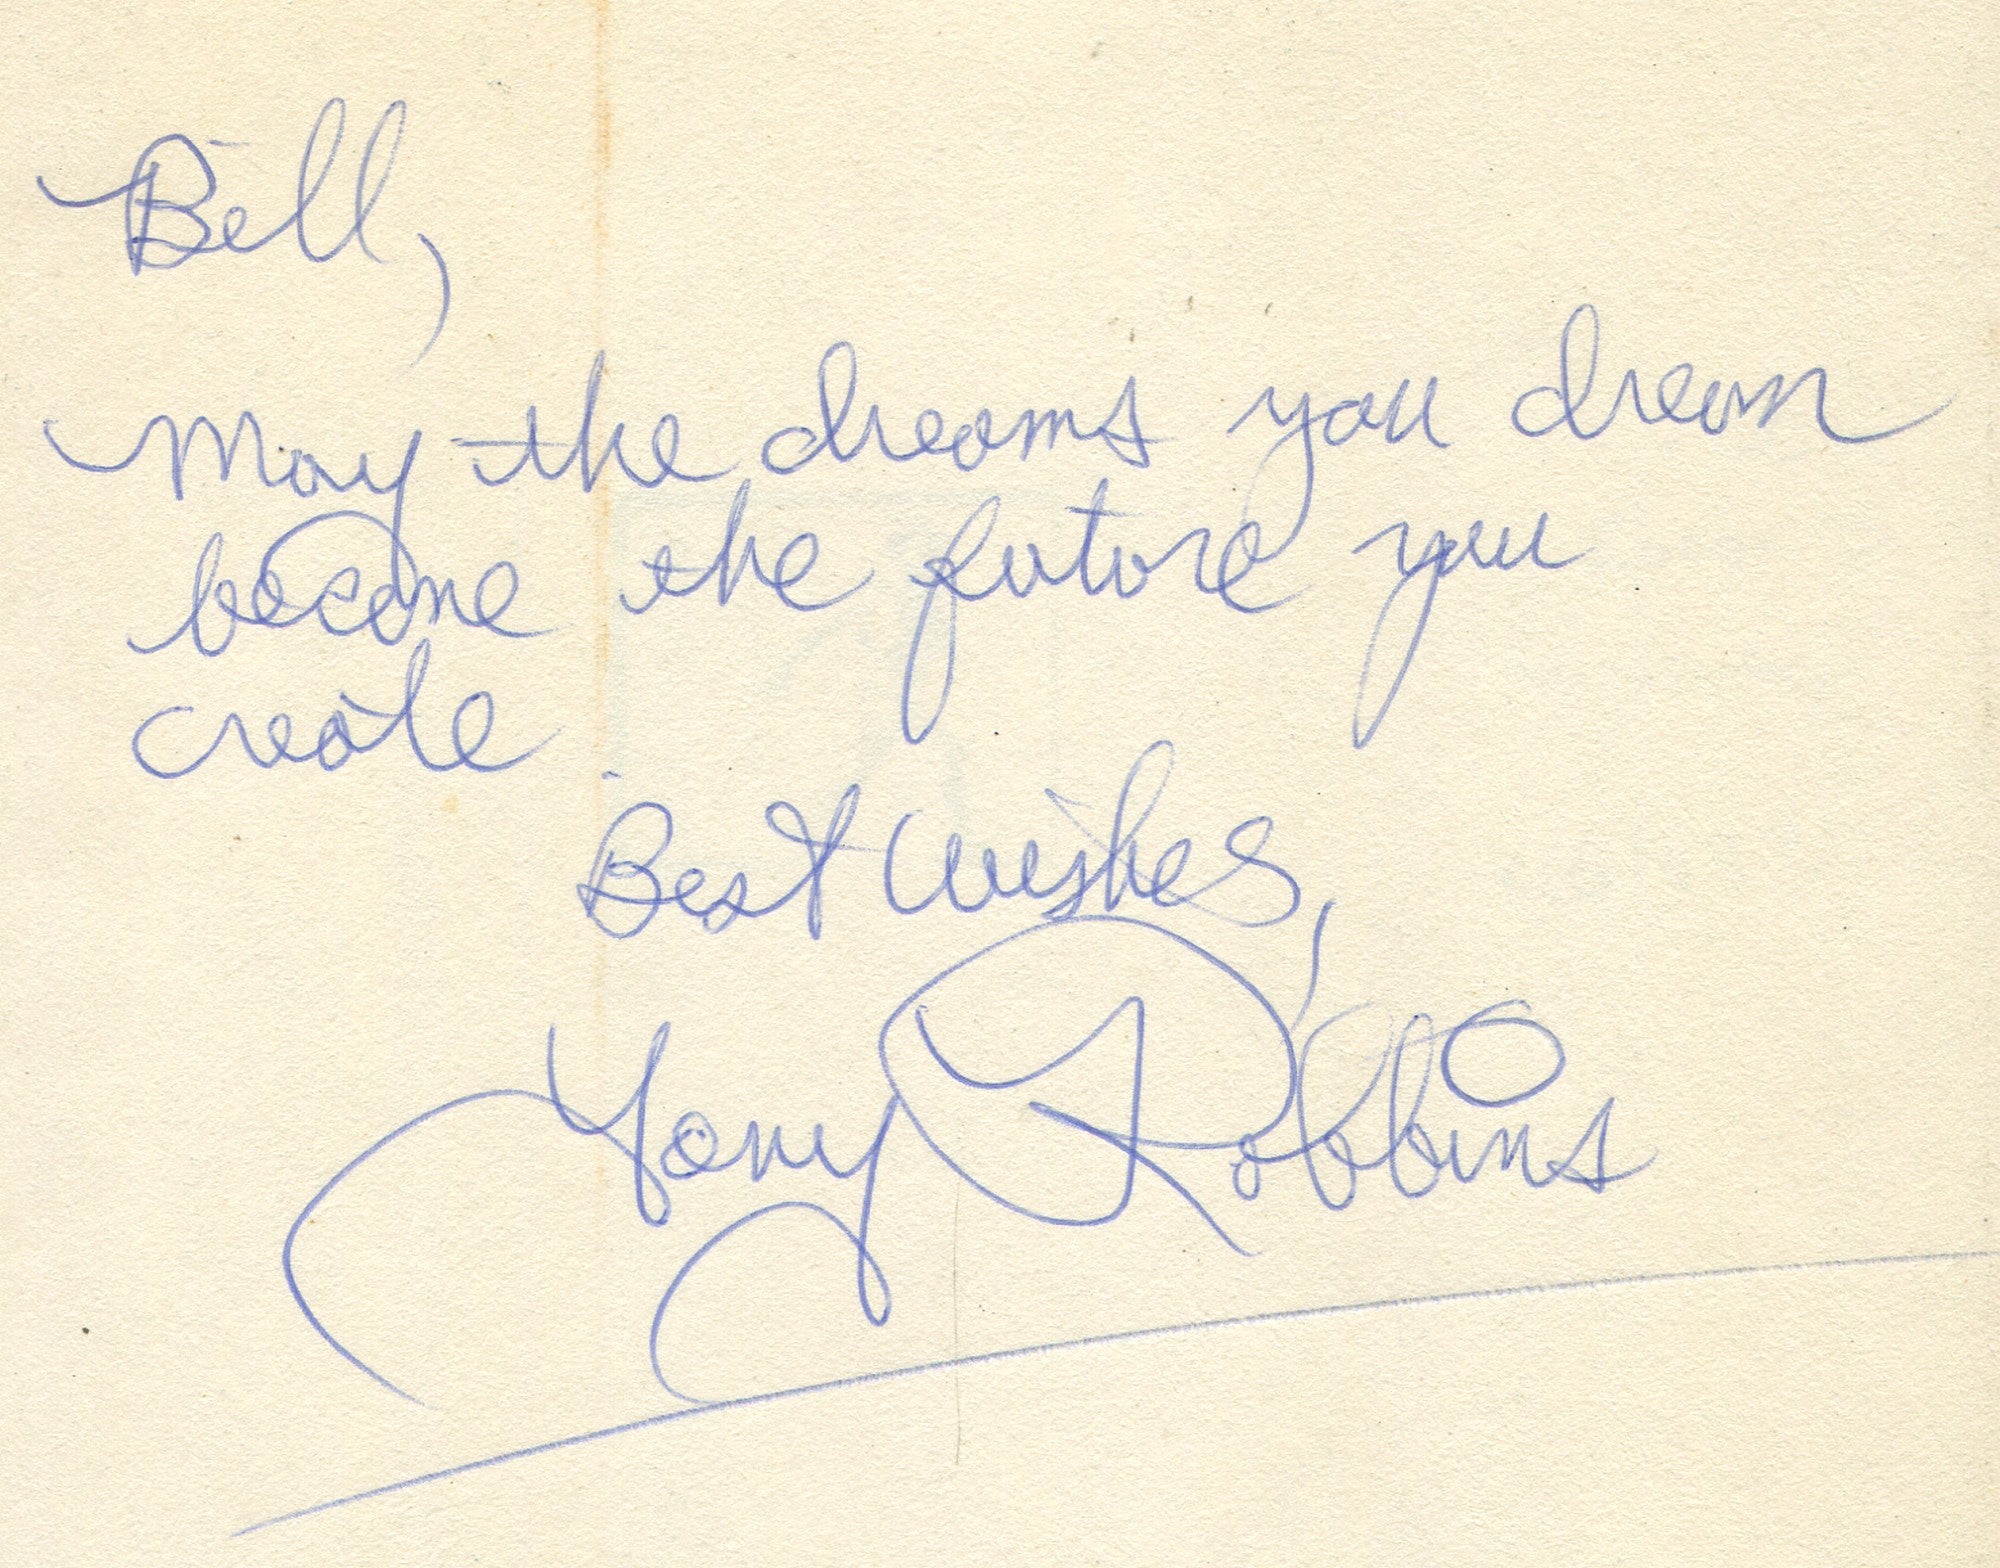 Bill,
May the dreams you dream
become the future you
create
Best Wishes,
Tony Robbins